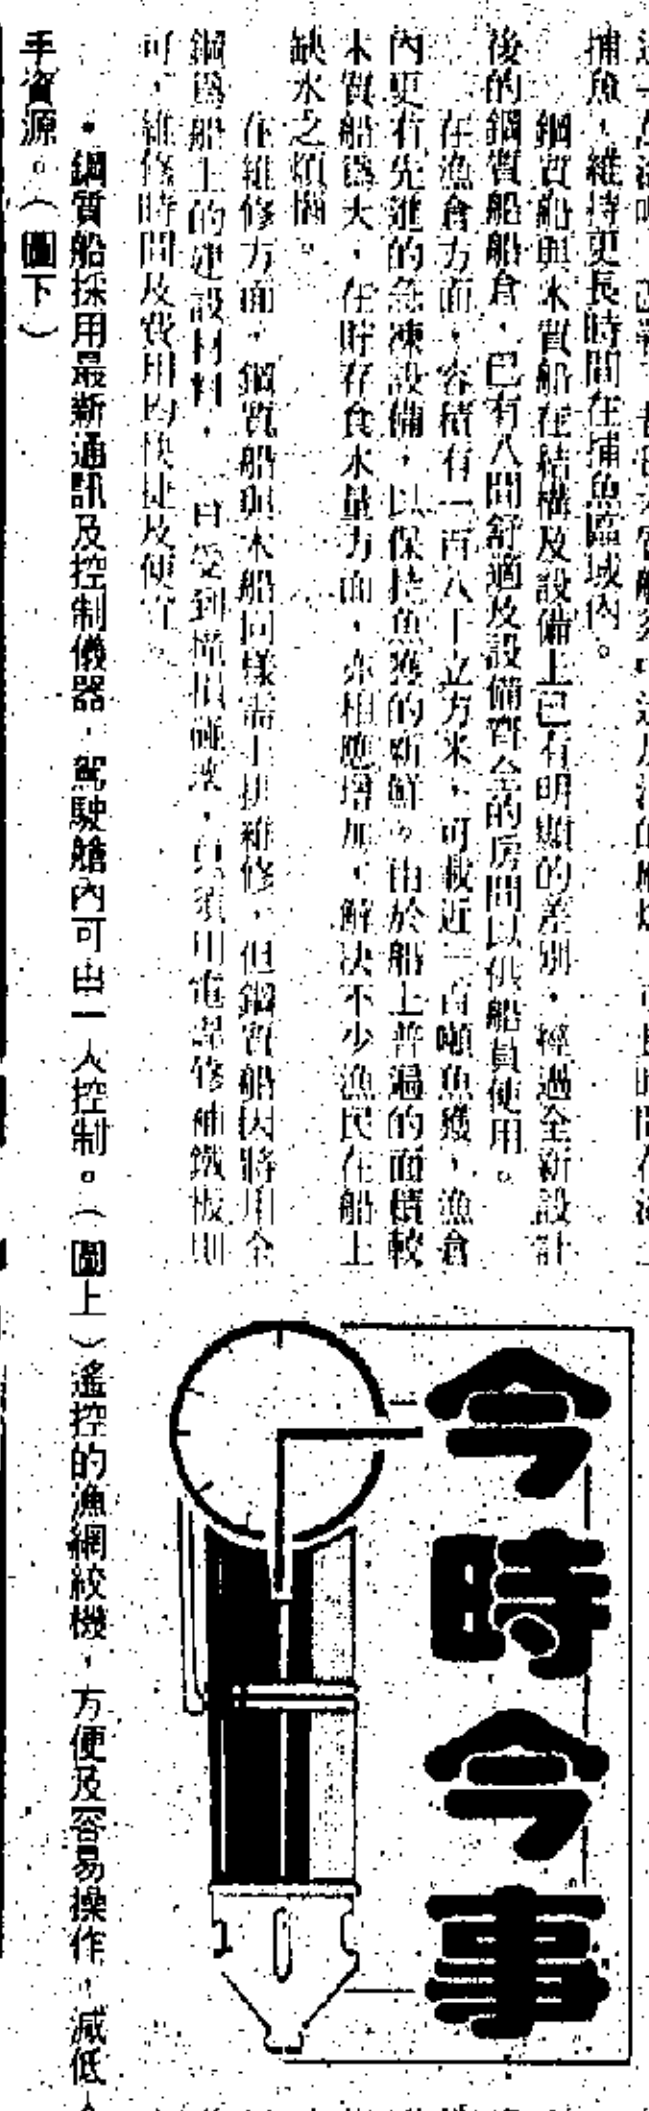 捕魚，維持更長時間在捕魚區域內。
鋼質船與木質船在結構及設備上已有明顯的差別，經過全新設計
後的鋼質船船倉，已有八間舒適及設備齊全的房間以供船員使用。
在漁倉方面，容積有一百八十立方米，可載近一百噸魚獲，漁倉
內更有先進的急凍設備，以保持魚獲的新鮮。由於船上普遍的面積較
木質船為大，在貯存食水量方面，亦相應增加，解決不少漁民在船上
缺水之煩惱。
在維修方面，鋼質船與木船同樣需上排維修，但鋼質船因將用全
鋼為船上的建設材料，一旦受到撞損碰裂，只須用電焊修補鐵板則
可，維修時間及費用均快捷及便宜。
•鋼質船採用最新通訊及控制儀器，駕駛艙內可由一人控制。（圖上）遙控的漁網絞機，方便及容易操作，減低人
手資源。（圖下）
今時今事